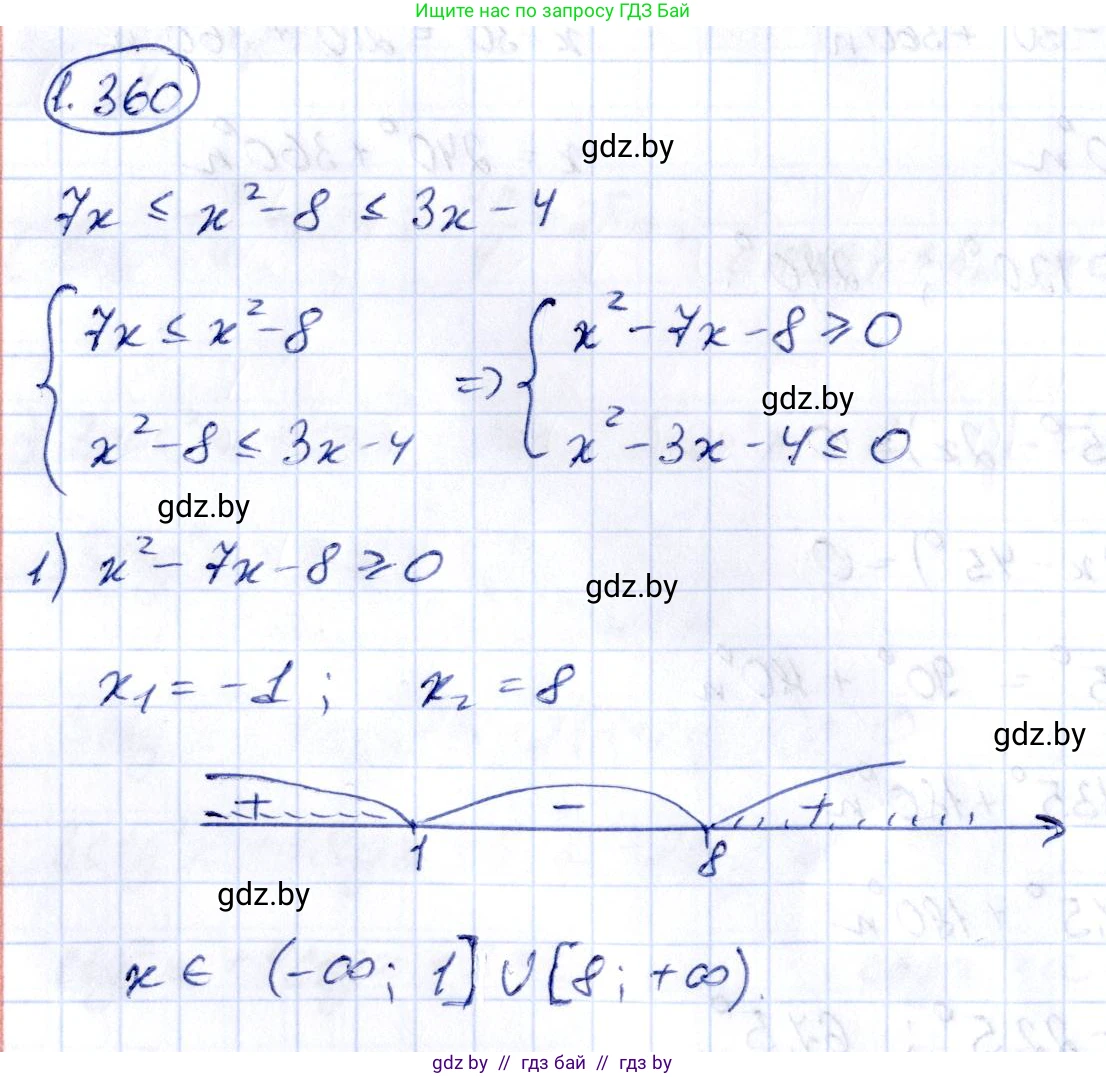 Ищите нас по запросу ГДЗ Бай
1. 360
gdz.by
7x ≤ x² - 8 ≤ 3x - 4
{ 7x ≤ x² - 8
x² - 8 ≤ 3x - 4
=> { x² - 7x - 8 ≥ 0
gdz.by
x² - 3x - 4 ≤ 0
gdz.by
1) x² - 7x - 8 ≥ 0
gdz.by
x₁ = -1 ; x₂ = 8
gdz.by
+ - +
1 8
gdz.by
x ∈ (-∞; 1] ∪ [8; +∞).
gdz.by // гдз бай // гдз by